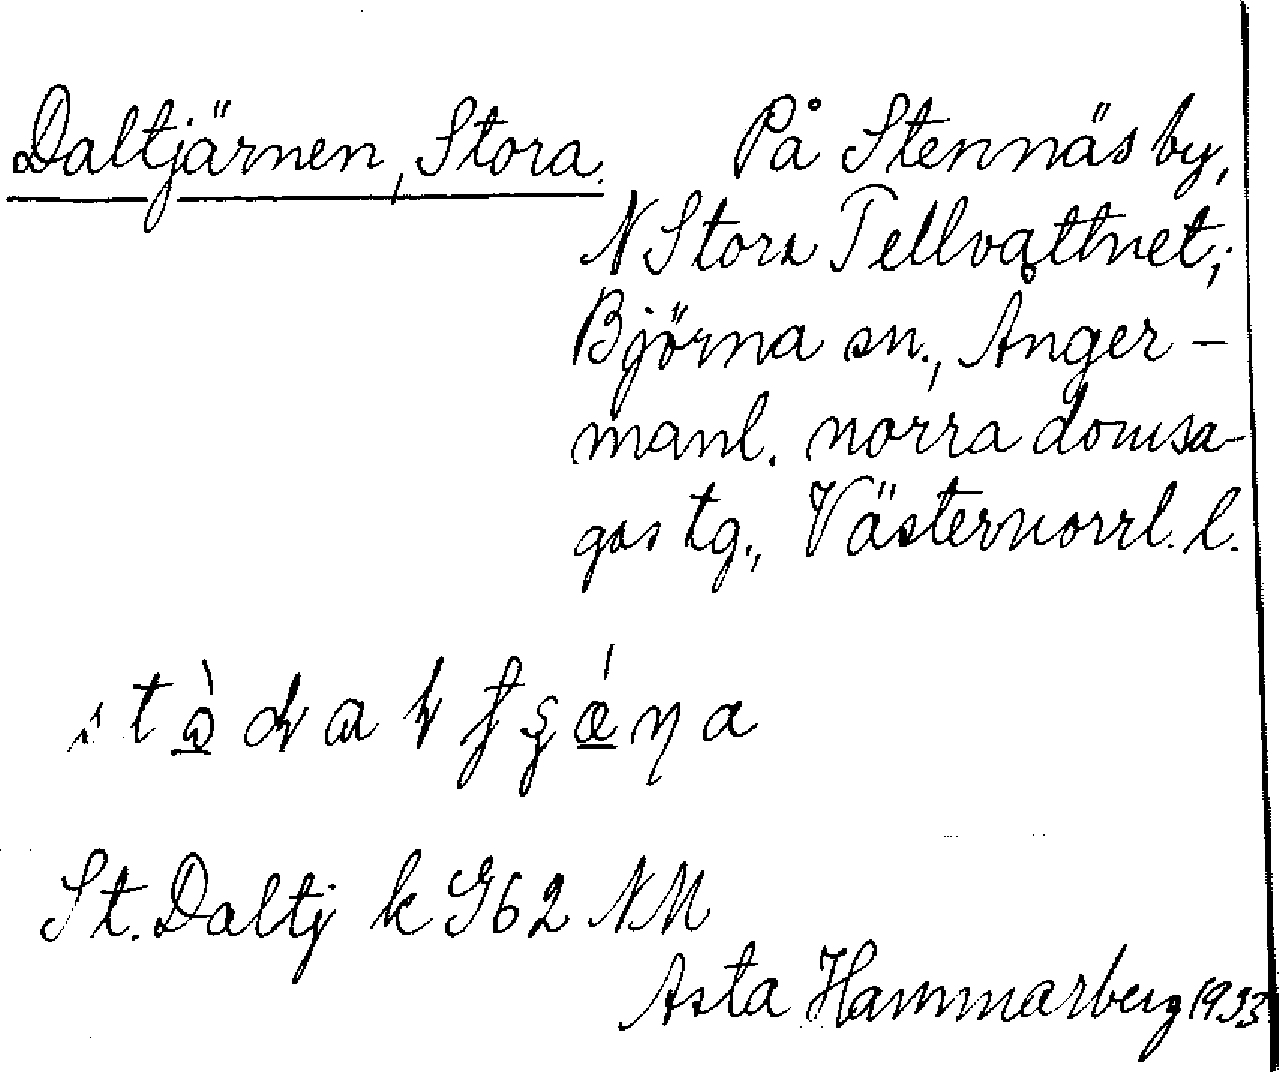 Daltjärnen, Stora. På Stennäs by,
N Stora Tellvattnet;
Björna sn., Ånger-
manl. norra domsa-
gas tg., Västernorrl. l.
St. Daltj k G62 NM
Asta Hammarberg 1933